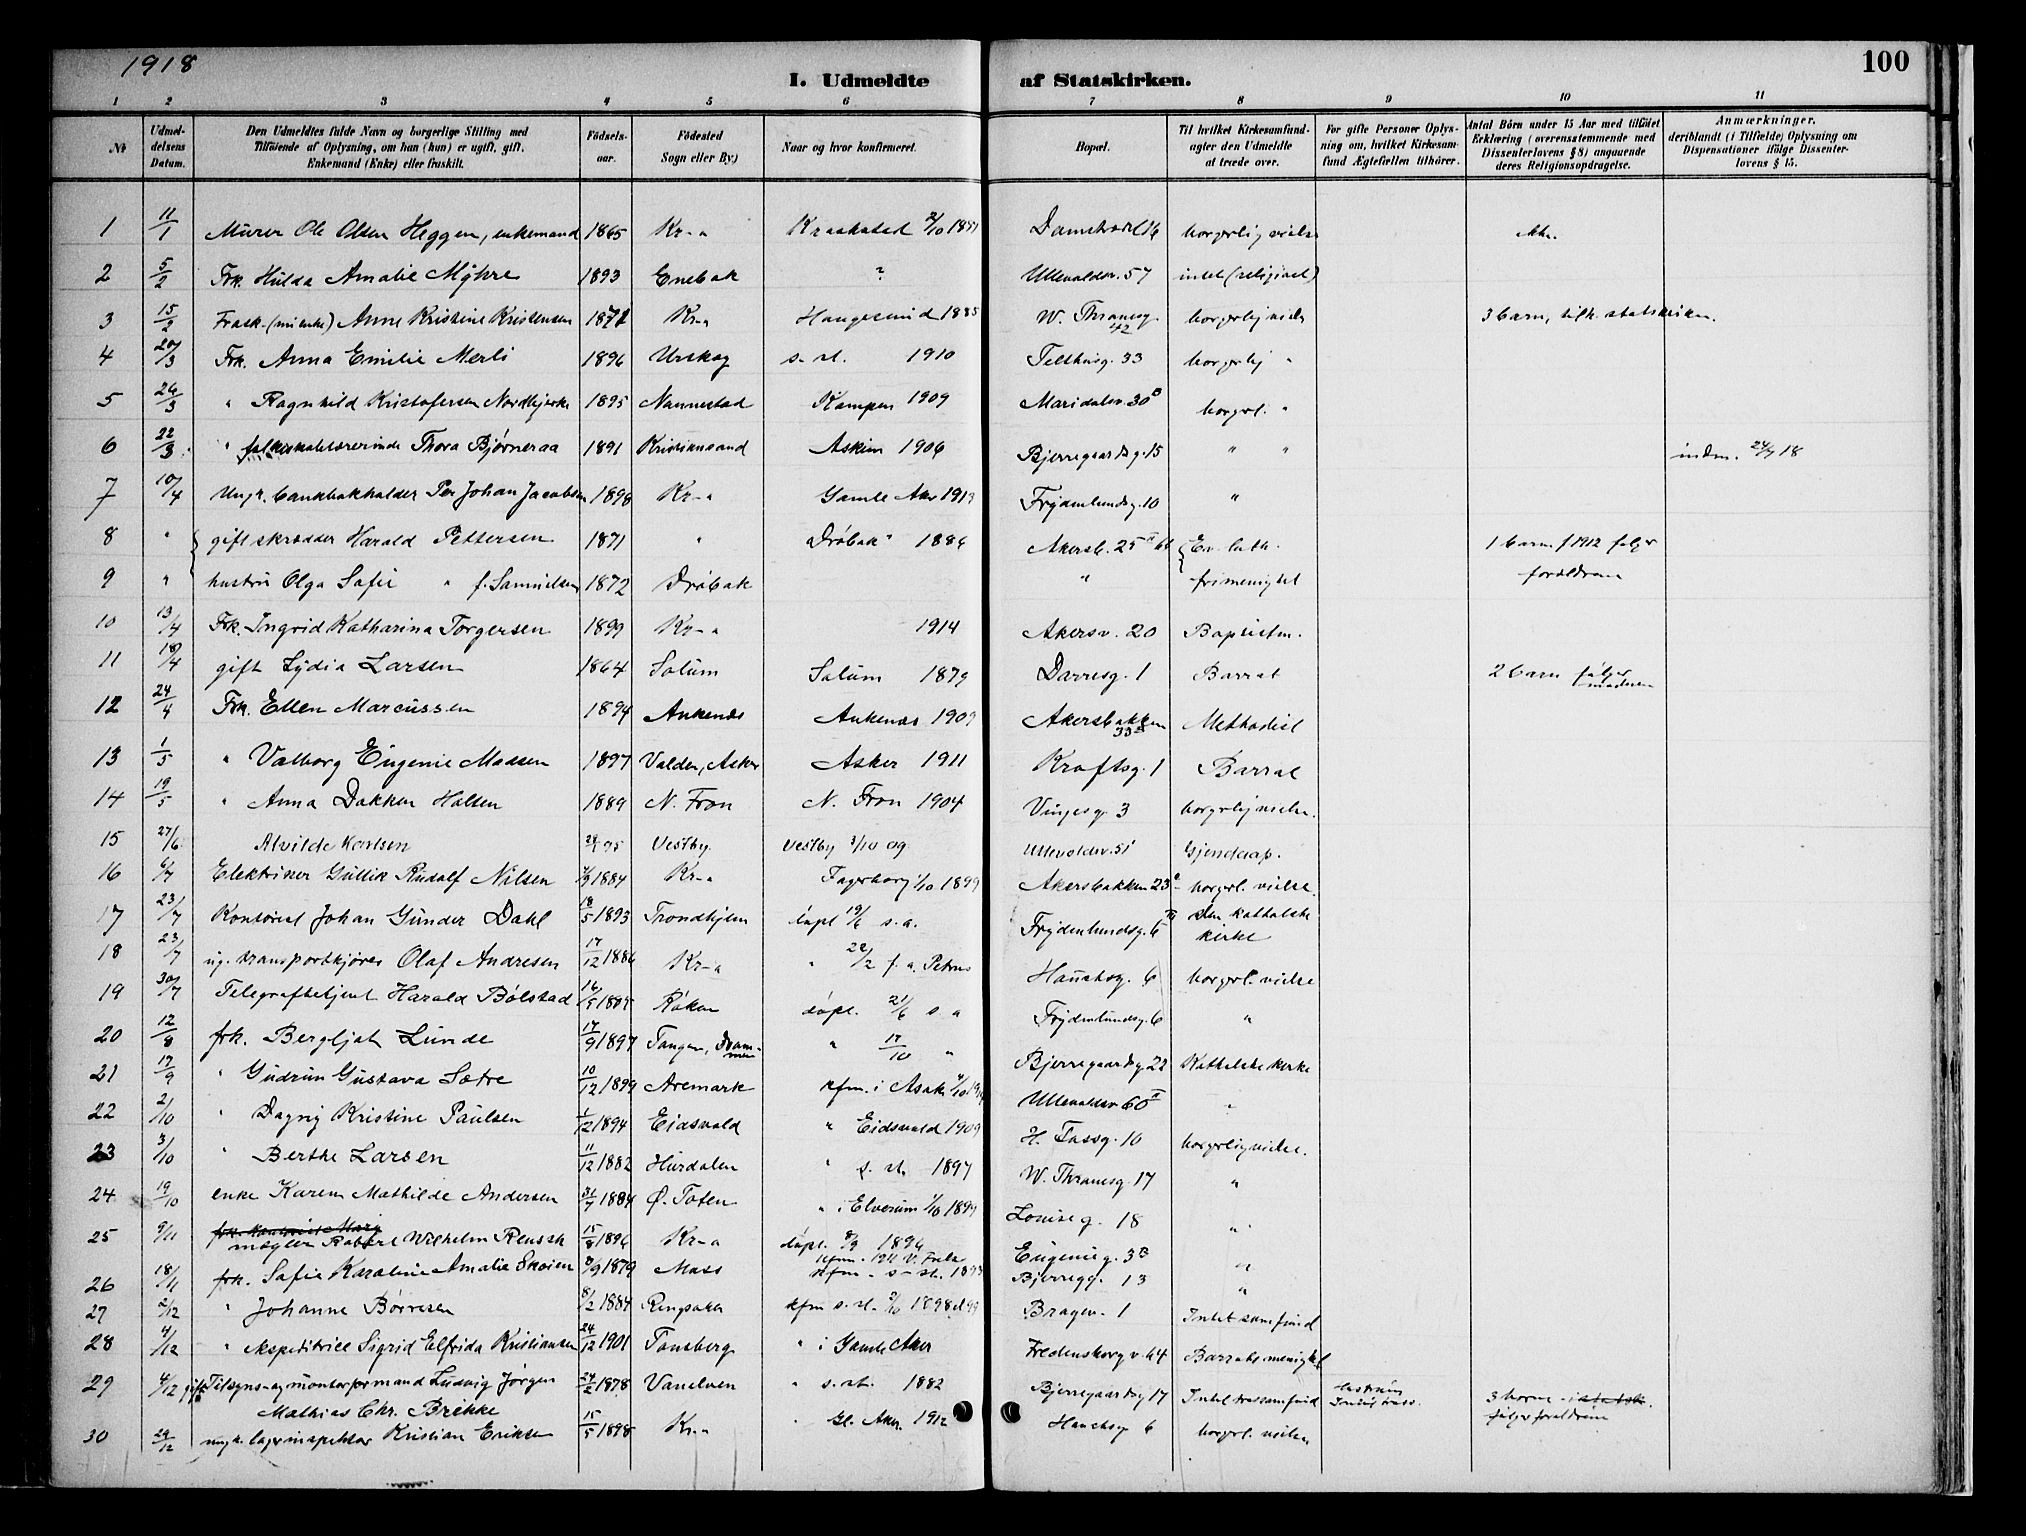 1918
100
I. Udmeldte af Statskirken.
1 2 3 4 5 6 7 8 9 10 11
№
Udmeldelsens Datum.
Den Udmeldtes fulde Navn og borgerlige Stilling med Tilføiende af Oplysning, om han (hun) er ugift, gift, Enkemand (Enke) eller fraskilt.
Fødselsaar.
Fødested Sogn eller By.)
Naar og hvor konfirmeret.
Bopæl.
Til hvilket Kirkesamfund agter den Udmeldte at træde over.
For gifte Personer Oplysning om, hvilket Kirkesamfund Ægtefællen tilhører.
Antal Börn under 15 Aar med tilföiet Erklæring (overensstemmende med Dissenterlovens § 8) angaaende deres Religionsopdragelse.
Anmærkninger, deriblandt (i Tilfælde) Oplysning om Dispensationer ifølge Dissenterlovens § 15.
1 11/1 Murer Ole Olsen Heggen, enkemand 1865 Kr-a Kraakstad 2/10 1881 Damstræd 16 borgerlig vielse
2 5/2 Frk. Hulda Amalie Myhre 1893 Enebak ? Ullevaldsv. 57 intet (religiøst)
3 15/2 Frask. Anne Kristine Kristensen 1871 Kr-a Haugesund 1885 W. Thranesg. 42 borgerlig vielse 3 barn, tilh. statskirken.
4 20/3 Frk. Anna Emilie Merli 1896 Urskog s. st. 1910 Telthusg. 33 borgerlig "
5 26/3 " Ragnhild Kristofersen Nordbjerke 1895 Nannestad Kampen 1909 Maridalsv. 30 B borgerl. "
6 22/3 " folkeskolelærerinde Thora Bjørneraa 1891 Kristiansand Askim 1906 Bjerregaardsg. 15 " " indm. 24/7 18
7 10/4 Ungk. bankbokholder Per Johan Jacobsen 1898 Kr-a Gamle Aker 1913 Frydenlundsg. 10 "
8 " gift skrædder Harald Pettersen 1871 " Drøbak 1886 Akersb. 25 Ev. luth. 1 barn f. 1912 følger
9 " hustru Olga Sofie " f. Samuelsen 1872 Drøbak " frimenighet forældrene
10 13/4 Frk. Ingrid Katharina Torgersen 1899 Kr-a 1914 Akersv. 20 Baptistm.
11 18/4 gift Lydia Larsen 1864 Solum Solum 1879 Darresg. 1 Barrat 2 barn følger moderen
12 24/4 Frk. Ellen Marcussen 1894 Ankenæs Ankenæs 1909 Akersbakken 33 Methodist
13 1/5 " Valborg Eugenie Madsen 1897 Valden, Asker Asker 1911 Kraftsg. 1 Barrat
14 19/5 " Anna Dakken Holten 1889 N. Fron N. Fron 1904 Vinjesg. 3 borgerlig vielse.
15 27/6 Alvilde Karlsen 95 Vestby. Vestby 3/10 09 Ullevoldsv. 51
16 6/7 Elektriker Gullik Rudolf Nilsen 1884 Kr-a Fagerborg 1/10 1899 Akersbakken 23 borgerl. vielse.
17 23/7 Kontorist Johan Gunder Dahl 18/5 1893 Trondhjem døpt 19/6 s. a. Frydenlundsg. 6 Den katholske kirke
18 23/7 ug. transportkjører Olaf Andresen 17/12 1886 Kr-a " 22/2 f. a. Petrus Hauchsg. 6 borgerl. vielse
19 30/7 Telegrafbetjent Harald Bølstad 16/5 1895 Røken døpt. 21/6 s. a Frydenlundsg. 6 "
20 12/8 frk. Bergljot Lunde 17/9 1897 Tangen, Drammen " 17/10 " Bjerregaardsg 22 Katholske kirke
21 17/9 " Gudrun Gustava Sætre 10/12 1899 Aremark kfm. i Asak Ullevaldsv 60 II "
22 2/10 " Dagny Kristine Paulsen 1/12 1894 Eidsvold " Eidsvold 1909 H. Tassg. 10 borgerlig vielse.
23 3/10 " Berthe Larsen 11/12 1882 Hurdalen " s. st. 1897 W. Thranesg. 17 "
24 19/10 enke Karen Mathilde Andersen 31/7 1884 Ø. Toten " i Elverum 1/10 1899 Louiseg. 18 "
25 9/11 mægler Robert Wilhelm Reussk 15/8 1896 Kr-a døpt. 8/9 1896 kfm. 1911 V. Frelse Eugenieg. 3B "
26 18/11 frk. Sofie Karoline Amalie Skoien 8/9 1879 Moss kfm. s. st. 1893 Bjerregg. 13 "
27 2/12 " Johanne Børresen 8/2 1884 Ringsaker kfm s. st. 2/10 1898 el 99 Bragev. 1 Intet samfund
28 4/12 " Ekspeditrice Sigrid Elfrida Kristiansen 24/12 1901 Tønsberg " i Gamle Aker Fredensborgv. 64 Barratsmenighet
29 4/12 gift Tilsyns- og montørformand Ludvig Jørgen Mathias Chr. Brekke 24/2 1878 Vanelven " s. st. 1882 Bjerregaardsg 17 Intet trossamfund hustruen 3 børn følger forældrene
30 29/12 ungk. lagerinspektør Kristian Eriksen 15/5 1898 Kr-a " Gl. Aker. 1912 Hauchsg 6 borgerl. vielse